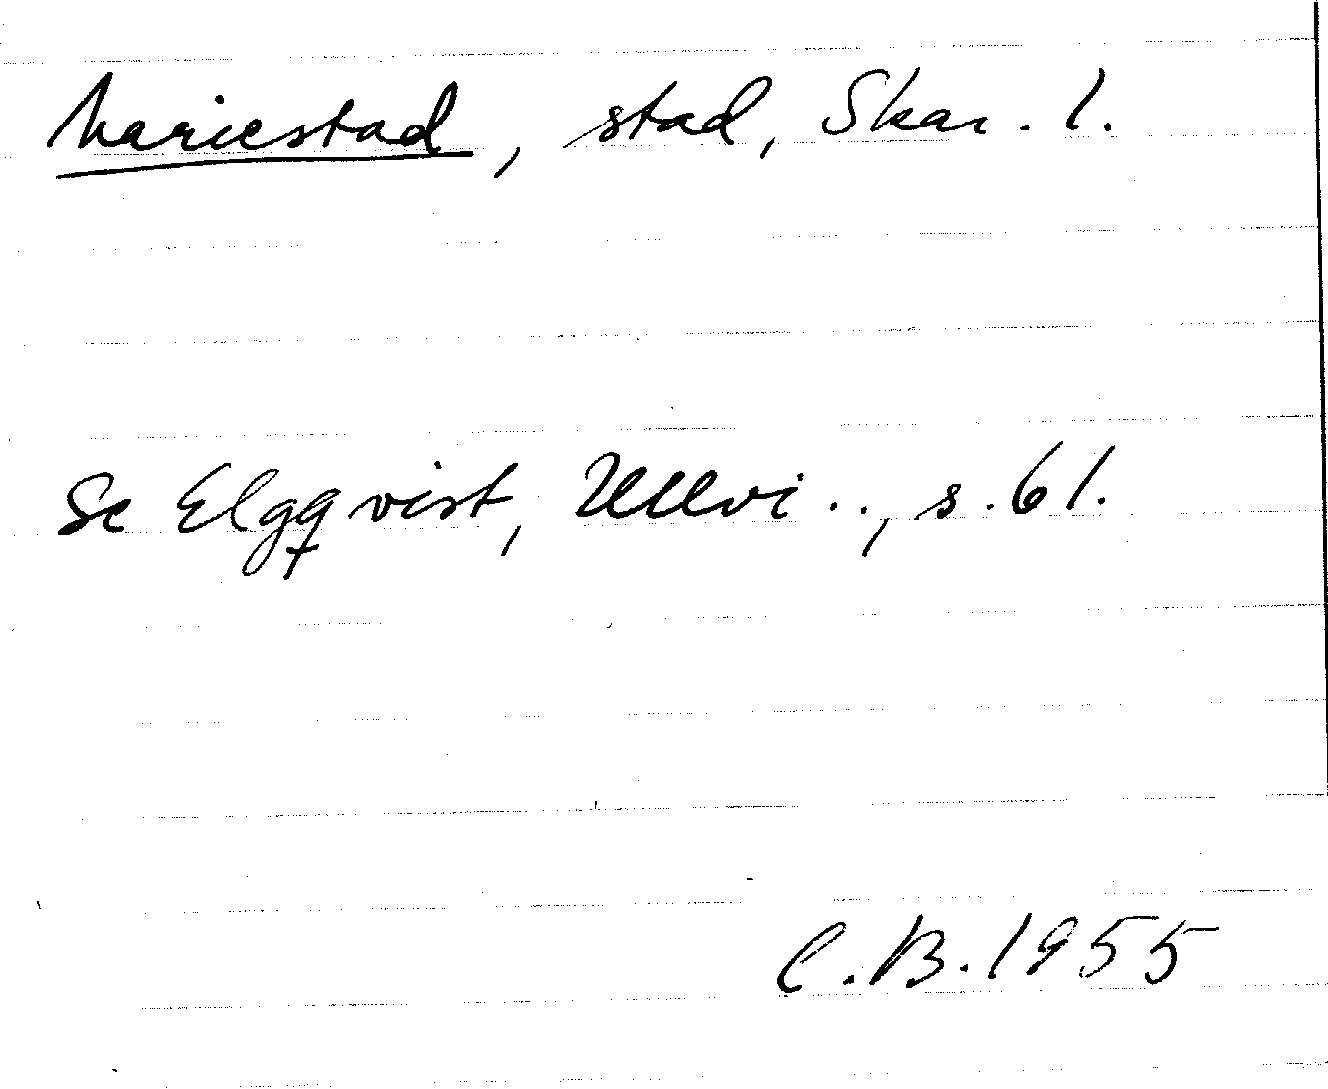 Mariestad, stad, Skar. l.
Se Elgqvist, Ullvi.., s. 61.
C.B. 1955